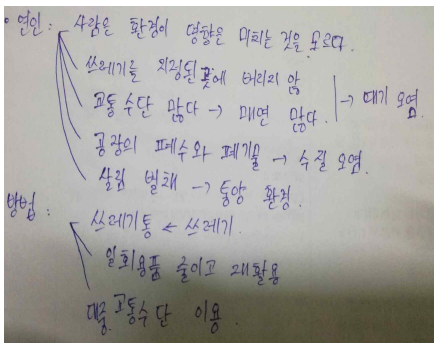 • 연인: 사람은 환경이 영향은 미치는 것을 모르다.
쓰레기를 지정된 곳에 버리지 않
교통 수단 많다 → 매연 많다. → 대기 오염
공장의 폐수와 폐기물 → 수질 오염.
살림 벌채 → 통양 환경.
방법:
쓰레기통 ← 쓰레기.
일회용품 줄이고 재활용
대중 교통수단 이용.